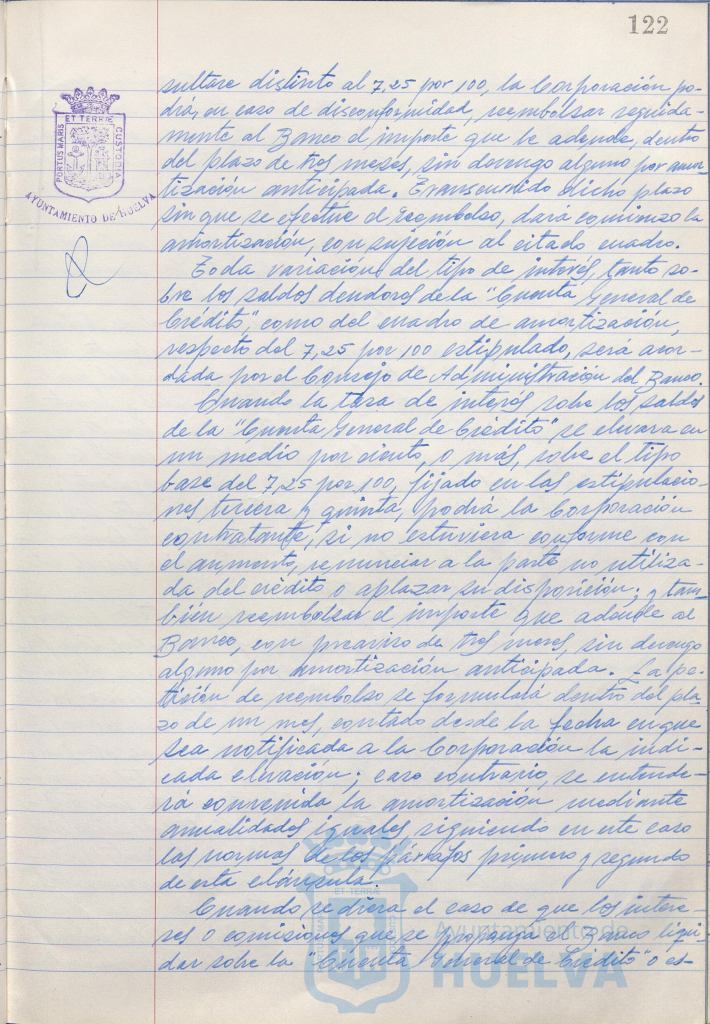 122
ET TERRÆ
PORTUS MARIS
CUSTODIA
AYUNTAMIENTO DE HUELVA
sultase distinto al 7,25 por 100, la Corporación po-
drá, en caso de disconformidad, reembolsar seguida-
mente al Banco el importe que le adeude, dentro
del plazo de tres meses, sin devengo alguno por amor-
tización anticipada. Transcurrido dicho plazo
sin que se efectúe el reembolso, dará comienzo la
amortización, con sujeción al citado cuadro.
Toda variación del tipo de interés, tanto so-
bre los saldos deudores de la "Cuenta General de
Crédito", como del cuadro de amortización,
respecto del 7,25 por 100 estipulado, será acor-
dada por el Consejo de Administración del Banco.
Cuando la tasa de interés sobre los saldos
de la "Cuenta General de Crédito" se elevara en
un medio por ciento, o más, sobre el tipo
base del 7,25 por 100, fijado en las estipulacio-
nes tercera y quinta, podrá la Corporación
contratante, si no estuviera conforme con
el aumento, renunciar a la parte no utiliza-
da del crédito o aplazar su disposición; y tam-
bién reembolsar el importe que adeude al
Banco, con preaviso de tres meses, sin devengo
alguno por amortización anticipada. La pe-
tición de reembolso se formulará dentro del pla-
zo de un mes, contado desde la fecha en que
sea notificada a la Corporación la indi-
cada elevación; caso contrario, se entende-
rá convenida la amortización mediante
anualidades iguales, siguiendo en este caso
las normas de los párrafos primero y segundo
de esta cláusula.
Cuando se diera el caso de que los intere-
ses o comisiones que se proponga el Banco liqui-
dar sobre la "Cuenta General de Crédito" o es-
ET TERRÆ
Ayuntamiento de
HUELVA